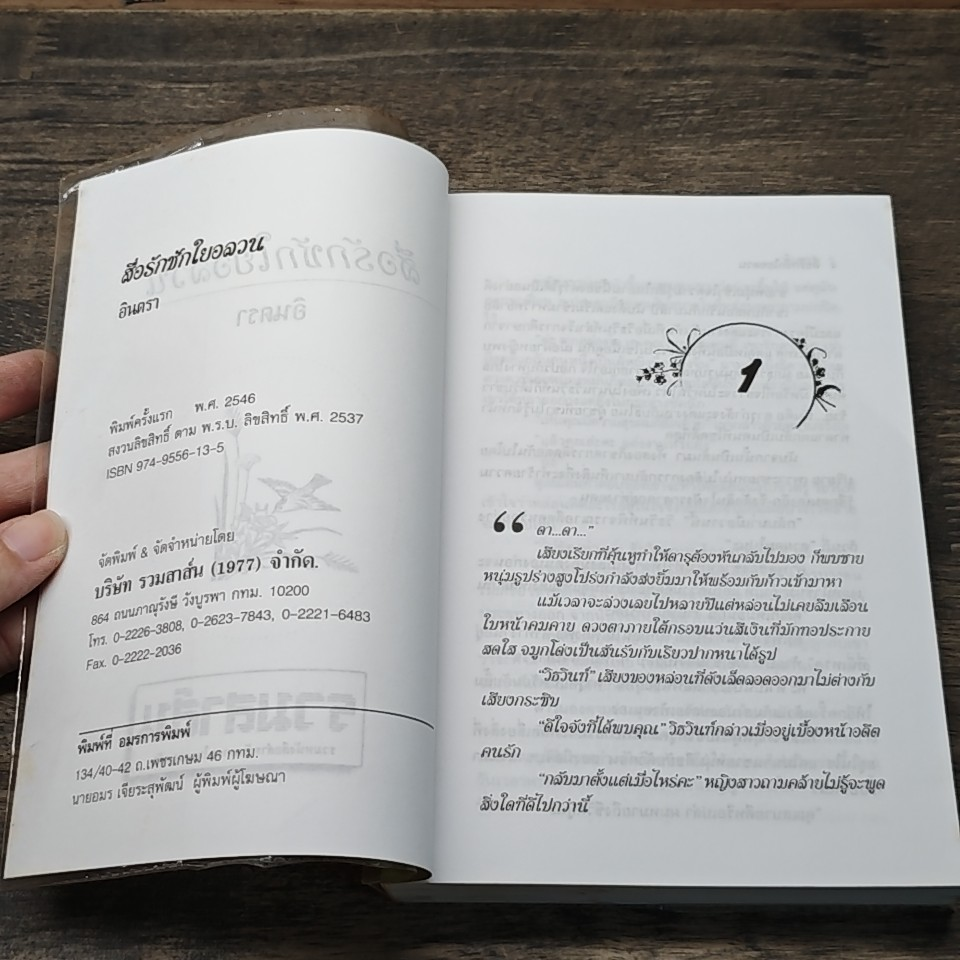 สื่อรักชักใยอลวน
อินตรา
พิมพ์ครั้งแรก พ.ศ. 2546
สงวนลิขสิทธิ์ ตาม พ.ร.บ. ลิขสิทธิ์ พ.ศ. 2537
ISBN 974-9556-13-5
จัดพิมพ์ & จัดจำหน่ายโดย
บริษัท รวมสาส์น (1977) จำกัด.
864 ถนนภาณุรังษี วังบูรพา กทม. 10200
โทร. 0-2226-3808, 0-2623-7843, 0-2221-6483
Fax. 0-2222-2036
พิมพ์ที่ อมรการพิมพ์
134/40-42 ถ.เพชรเกษม 46 กทม.
นายอมร เจียระสุพัฒน์ ผู้พิมพ์ผู้โฆษณา
1
“ดา...ดา...”
เสียงเรียกที่คุ้นหูทำให้ดารุต้องหันกลับไปมอง ก็พบชาย
หนุ่มรูปร่างสูงโปร่งกำลังส่งยิ้มมาให้พร้อมกับก้าวเข้ามาหา
แม้เวลาจะล่วงเลยไปหลายปีแต่หล่อนไม่เคยลืมเลือน
ใบหน้าคมคาย ดวงตาภายใต้กรอบแว่นสีเงินที่มักทอประกาย
สดใส จมูกโด่งเป็นสันรับกับเรียวปากหนาได้รูป
“วิธวินท์” เสียงของหล่อนที่ดังเล็ดลอดออกมาไม่ต่างกับ
เสียงกระซิบ
“ดีใจจังที่ได้พบคุณ” วิธวินท์กล่าวเมื่ออยู่เบื้องหน้าอดีต
คนรัก
“กลับมาตั้งแต่เมื่อไหร่คะ” หญิงสาวถามคล้ายไม่รู้จะพูด
สิ่งใดที่ดีไปกว่านี้